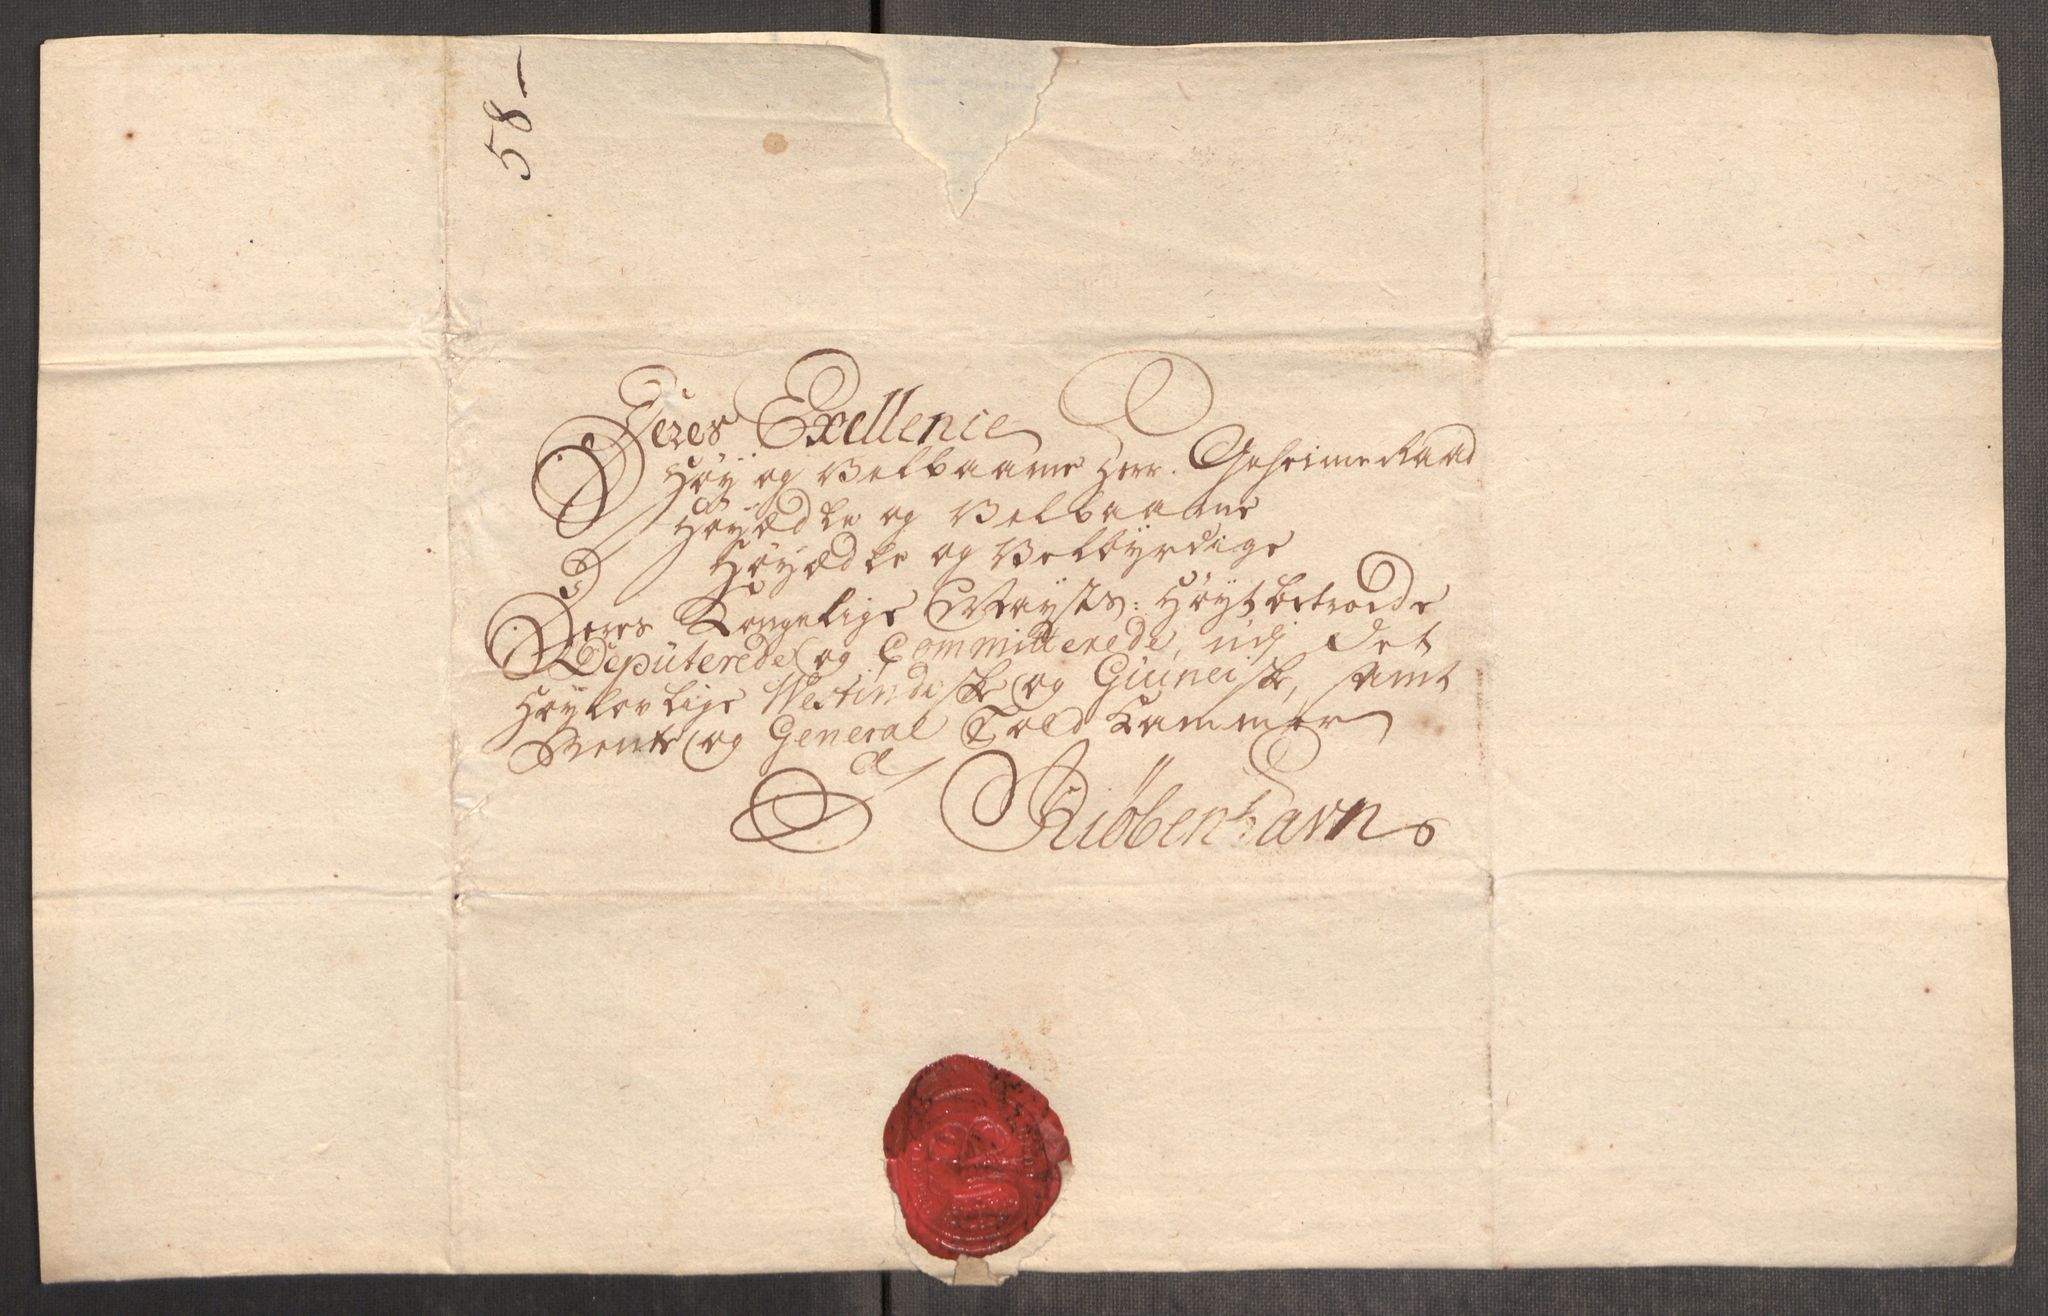 58 –
Deres Exellence
Høy og Velbaarne Herr. Geheime Raad
Høyædle og Velbaarne
Høyædle og Velbyrdige
Deres Kongelige Mayts: Høyt betroede
Deputerede og Committerede, udj det
Høylovlige Westindiske og Guineiske, samt
Rente og General Told Kammer
Kiøbenhavn